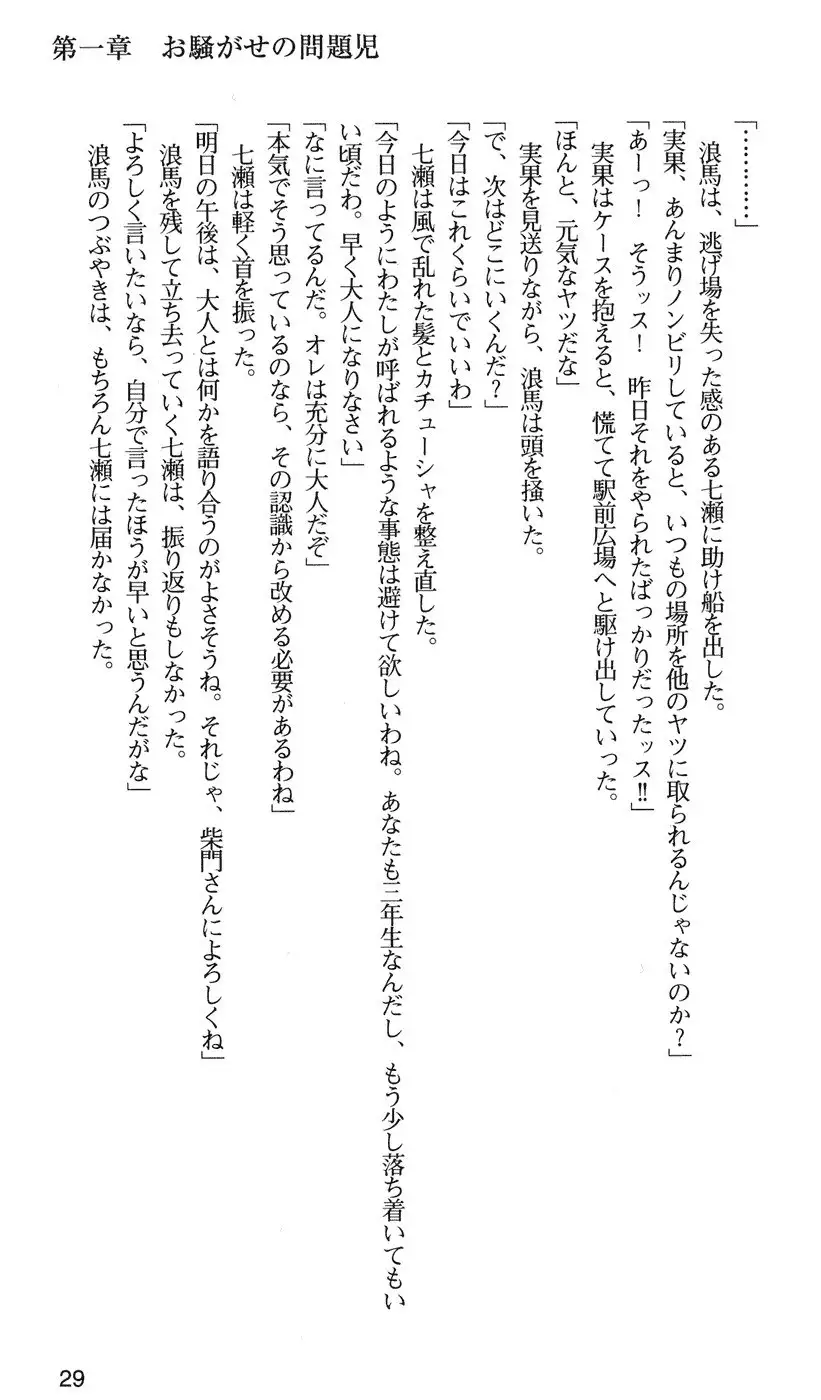 第一章　お騒がせの問題児
「…………」
　浪馬は、逃げ場を失った感のある七瀬に助け船を出した。
「実果、あんまりノンビリしていると、いつもの場所を他のヤツに取られるんじゃないのか？」
「あーっ！　そうッス！　昨日それをやられたばっかりだったッス!!」
　実果はケースを抱えると、慌てて駅前広場へと駆け出していった。
「ほんと、元気なヤツだな」
　実果を見送りながら、浪馬は頭を掻いた。
「で、次はどこにいくんだ？」
「今日はこれくらいでいいわ」
　七瀬は風で乱れた髪とカチューシャを整え直した。
「今日のようにわたしが呼ばれるような事態は避けて欲しいわね。あなたも三年生なんだし、もう少し落ち着いてもい
い頃だわ。早く大人になりなさい」
「なに言ってるんだ。オレは充分に大人だぞ」
「本気でそう思っているのなら、その認識から改める必要があるわね」
　七瀬は軽く首を振った。
「明日の午後は、大人とは何かを語り合うのがよさそうね。それじゃ、柴門さんによろしくね」
　浪馬を残して立ち去っていく七瀬は、振り返りもしなかった。
「よろしく言いたいなら、自分で言ったほうが早いと思うんだがな」
　浪馬のつぶやきは、もちろん七瀬には届かなかった。
29